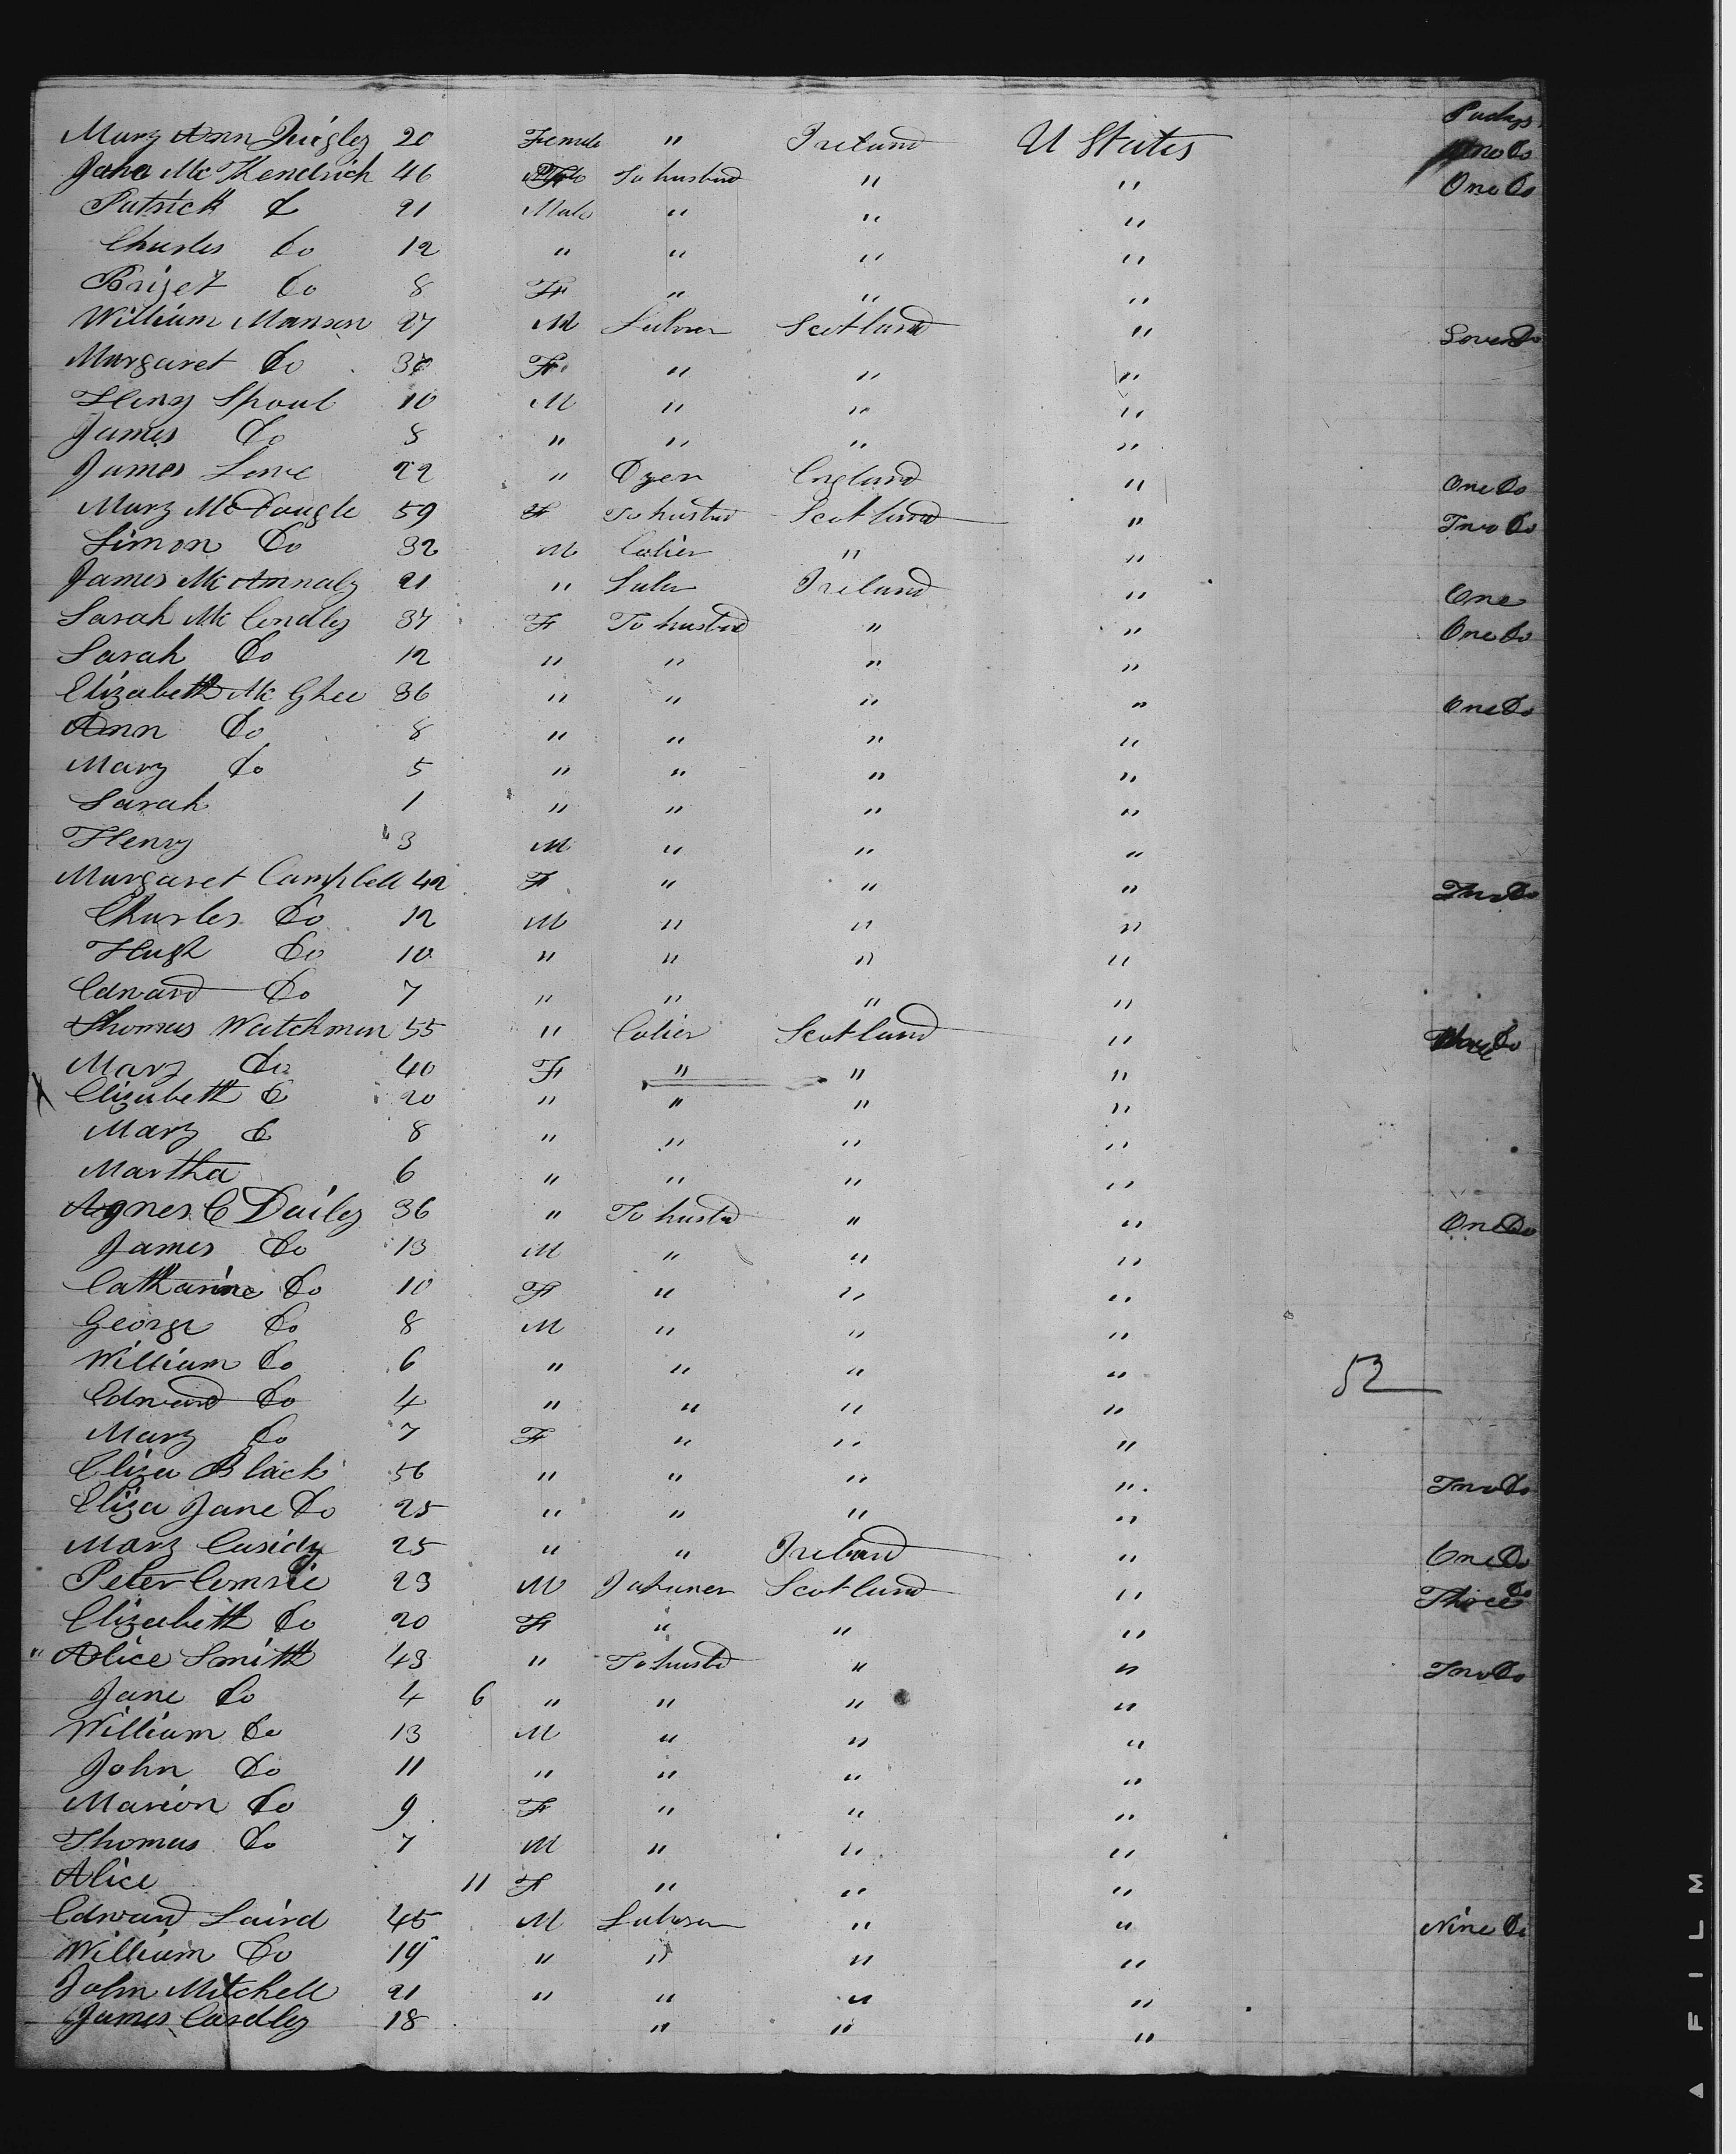 Packgs
Mary Ann Quigley 20 Female " Ireland U States One Do
Jane McKendrick 46 To husband " " One Do
Patrick Do 21 Male " " "
Charles Do 12 " " " "
Briget Do 8 F " " "
William Manson 27 M Laborer Scotland " Seven Do
Margaret Do F " " "
Henry Spoul 10 M " " "
James Do 8 " " " "
James Lowe 22 " Dyer England " One Do
Mary McDougle 59 F To husbnd Scotland " Two Do
Simon Do 32 M Colier " "
James McAnnaly 21 " Labr Ireland " One
Sarah McCondley 34 F To husbnd " " One Do
Sarah Do 12 " " " "
Elizabeth McGhee 36 " " " " One Do
Ann Do 8 " " " "
Mary Do 5 " " " "
Sarah 1 " " " "
Henry 3 M " " "
Margaret Campbell 42 F " " " Two Do
Charles Do 12 M " " "
Hugh Do 10 " " " "
Edward Do 7 " " " "
Thomas Watchman 55 " Colier Scotland " Three Do
Mary Do 40 F " " "
X Elizabeth Do 20 " " " "
Mary Do 8 " " " "
Martha 6 " " " "
Agnes C Dailey 36 " To husbd " " One Do
James Do 13 M " " "
Catharine Do 10 F " " "
George Do 8 M " " "
William Do 6 " " " " 52
Edward Do 4 " " " "
Mary Do 7 F " " "
Eliza Black 56 " " " " Two Do
Eliza Jane Do 25 " " " "
Mary Casidy 25 " " Ireland " One Do
Peter Comrie 23 M Scotland " Three Do
Elizabeth Do 20 F " " "
" Alice Smith 43 " To husbd " " Two Do
Jane Do 4 6 " " " "
William Do 13 M " " "
John Do 11 " " " "
Marion Do 9 F " " "
Thomas Do 7 M " " "
Alice 11 F " " "
Edward Laird 45 M Laborer " " Nine Do
William Do 19 " " " "
John Mitchell 21 " " " "
James Cardley 18 " " "
FILM